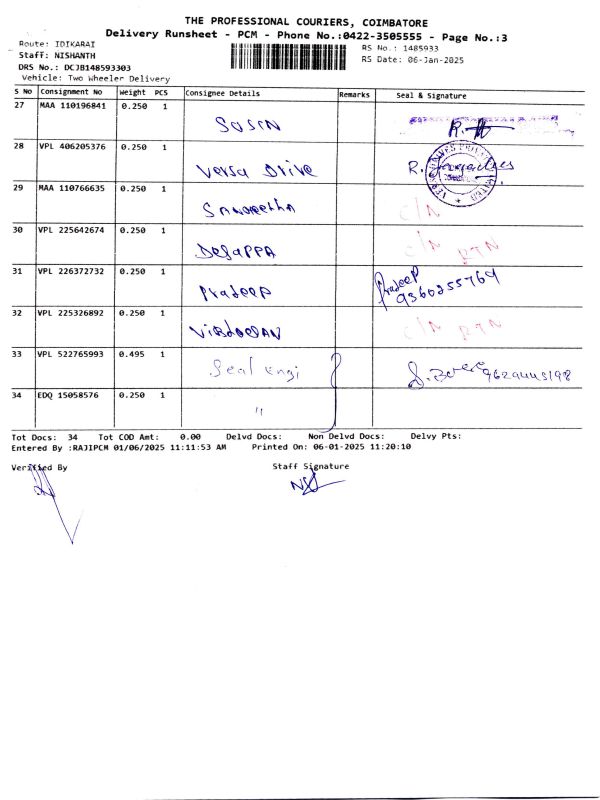 THE PROFESSIONAL COURIERS, COIMBATORE
Delivery Runsheet - PCM - Phone No.:0422-3505555 - Page No.:3
Route: IDIKARAI
RS No.: 1485933
Staff: NISHANTH
RS Date: 06-Jan-2025
DRS No.: DCJB148593303
Vehicle: Two Wheeler Delivery
S NO Consignment No Weight PCS Consignee Details Remarks Seal & Signature
27 MAA 110196841 0.250 1
28 VPL 406205376 0.250 1 Versa Drive
29 MAA 110766635 0.250 1 Sangeetha C/N
30 VPL 225642674 0.250 1 Degappa C/N RTN
31 VPL 226372732 0.250 1 Pradeep Pradeep 9360255764
32 VPL 225326892 0.250 1 C/N RTN
33 VPL 522765993 0.495 1 Seal Engi
34 EDQ 15058576 0.250 1 "
Tot Docs: 34 Tot COD Amt: 0.00 Delvd Docs: Non Delvd Docs: Delvy Pts:
Entered By :RAJIPCM 01/06/2025 11:11:53 AM Printed On: 06-01-2025 11:20:10
Verified By Staff Signature